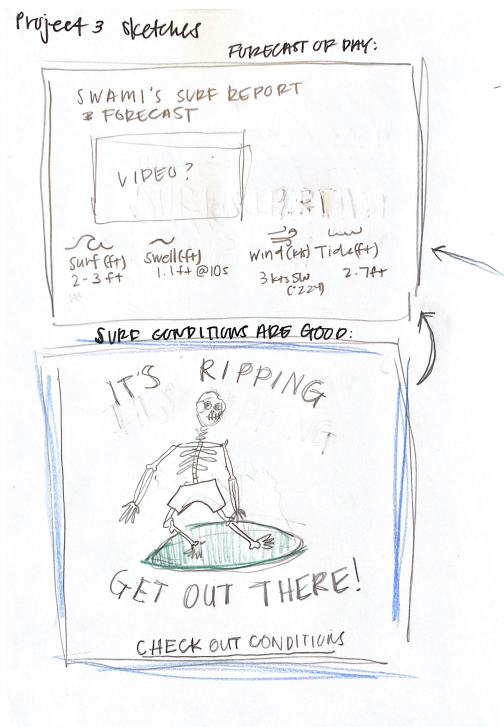 Project 3 sketches
FORECAST OF DAY:
SWAMI'S SURF REPORT
& FORECAST
VIDEO?
Surf (ft) Swell (ft) Wind (kts) Tide (ft)
2-3 ft 1.1 ft @10s 3 kts SW 2.7 ft
SURF CONDITIONS ARE GOOD:
IT'S RIPPING
GET OUT THERE!
CHECK OUT CONDITIONS